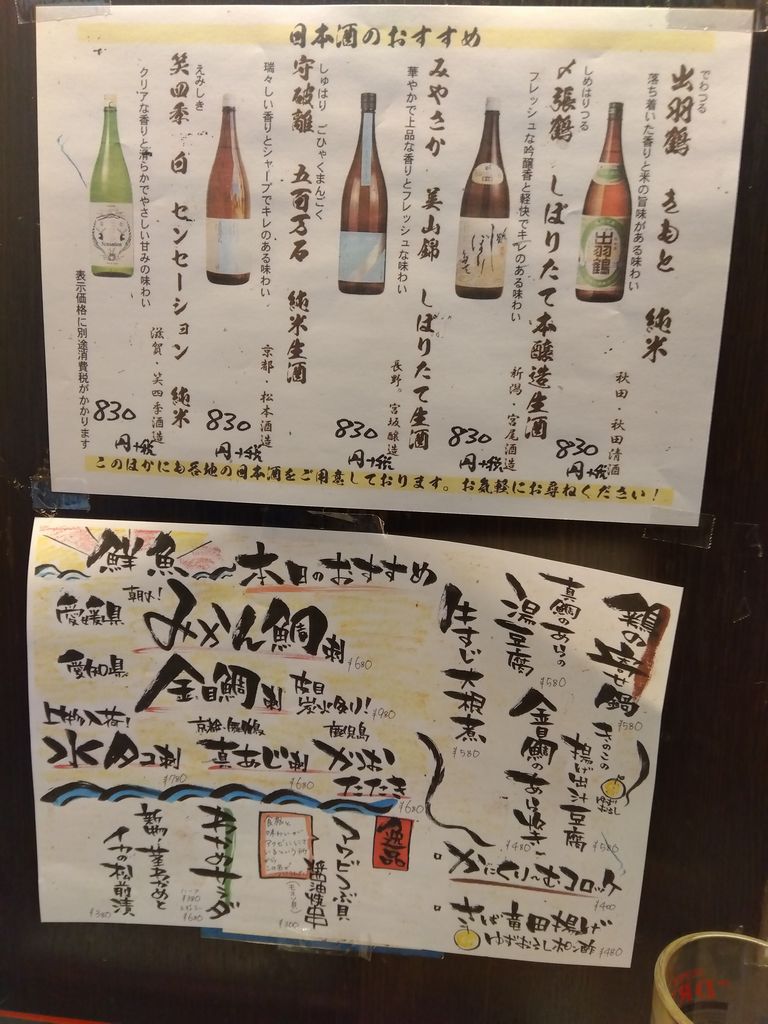 日本酒のおすすめ
でわつる
出羽鶴 きもと 純米
落ち着いた香りと米の旨味がある味わい
秋田・秋田清酒
830
円+税
出羽鶴
しめはりつる
〆張鶴 しぼりたて本醸造生酒
フレッシュな吟醸香と軽快でキレのある味わい
新潟・宮尾酒造
830
円+税
みやさか 美山錦 しぼりたて生酒
華やかで上品な香りとフレッシュな味わい
長野。宮坂醸造
830
円+税
しゅはり ごひゃくまんごく
守破離 五百万石 純米生酒
瑞々しい香りとシャープでキレのある味わい
京都・松本酒造
830
円+税
えみしき
笑四季 白 センセーション 純米
クリアな香りと滑らかでやさしい甘みの味わい
滋賀・笑四季酒造
830
円+税
表示価格に別途消費税がかかります
このほかにも各地の日本酒をご用意しております。お気軽にお尋ねください！
鮮魚 本日のおすすめ
愛媛県 朝〆!
みかん鯛刺 ¥680
愛知県
金目鯛刺 皮目炭火炙り! ¥980
上物入荷!
水タコ刺 ¥780
京都・舞鶴
真あじ刺 ¥680
鹿児島
かつおたたき ¥680
鶏の 鍋 ¥580
きのこの揚げ出汁豆腐 ¥580
真鯛のあらの湯豆腐 ¥580
金目鯛のあら炊き ¥480
牛すじ大根煮 ¥580
かにくりーむコロッケ ¥400
さば竜田揚げ
ゆずおろしポン酢 ¥480
逸品
アワビつぶ貝
醤油焼串 ¥300
わかめサラダ
ハーフ ¥380
¥680
新物・茎わかめと
イカの松前漬 ¥380